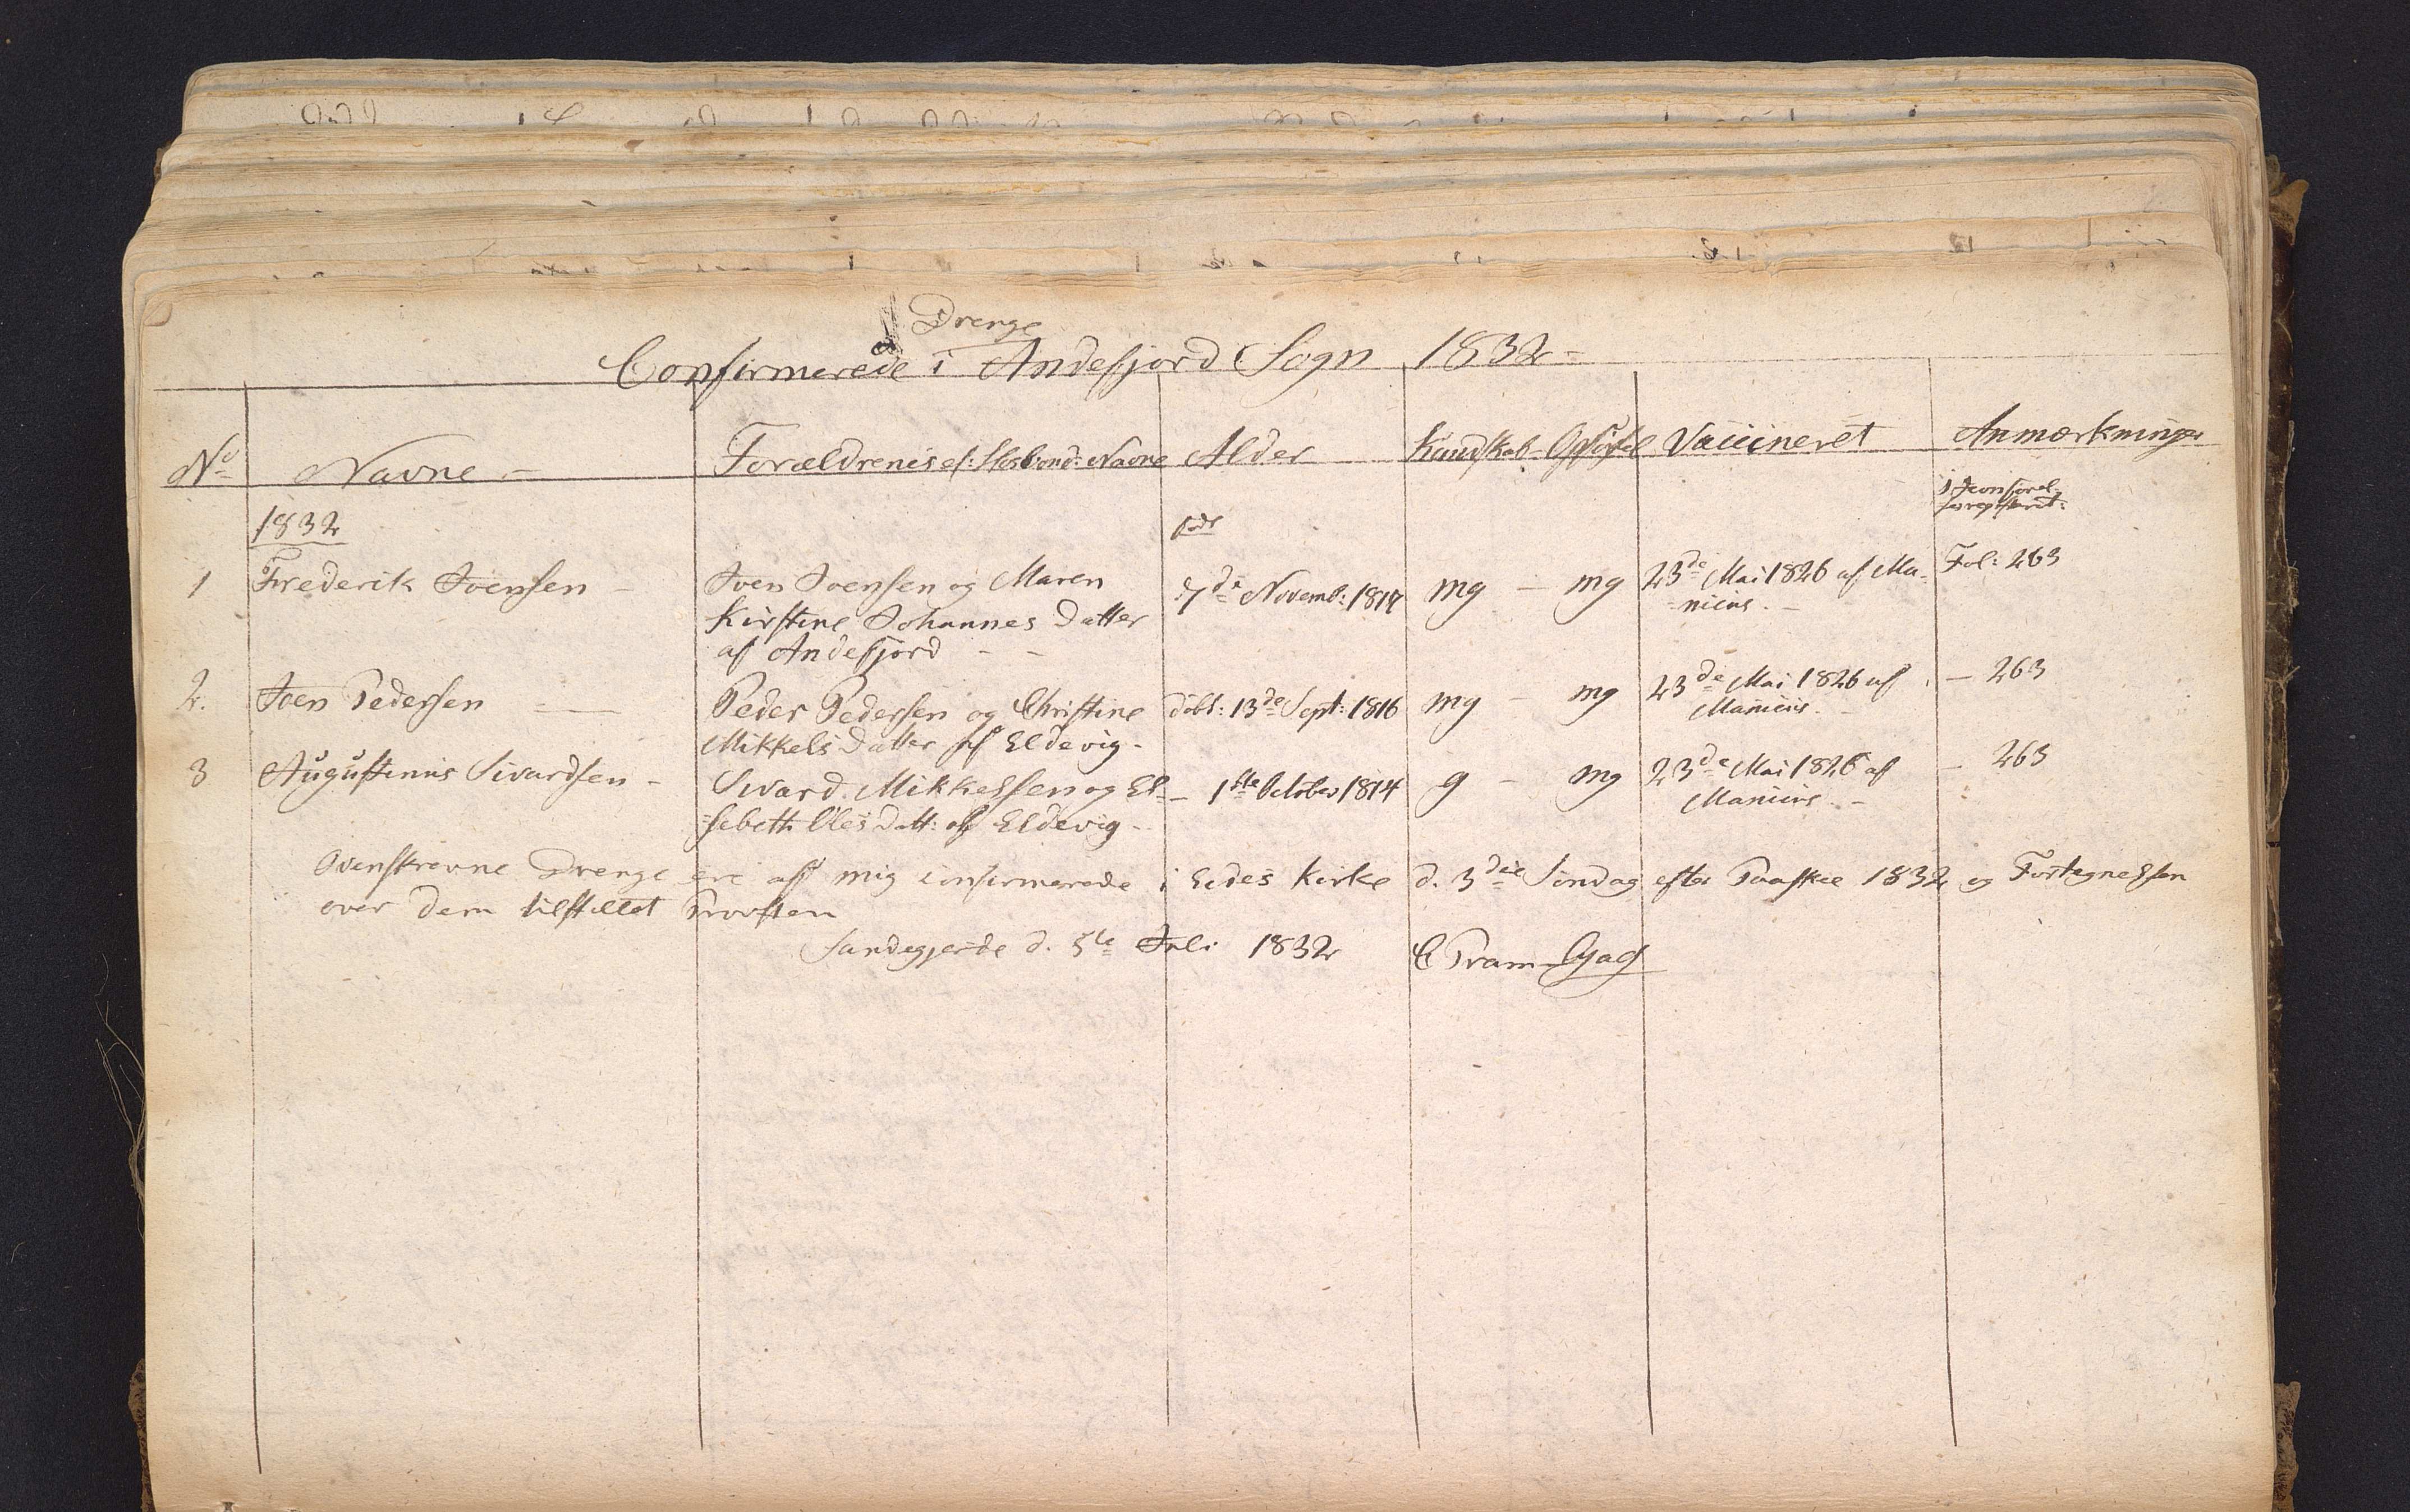 Drenge
Confirmerede i Andefjord Sogn 1832
No Navne Forældrenes el: Hosbond: Navne Alder Kundskab Opførsel Vaccineret Anmærkninger
1832 født
1 Frederik Joensen Joen Joensen og Maren Kirstine Johannes Datter af Andefjord 7de Novemb: 1817 mg mg 23de Mai 1826 af Manicus. Fol: 263
2. Joen Pedersen Peder Pedersen og Christine Mikkels Datter af Eldevig døbt: 13de Sept: 1816 mg mg 23de Mai 1826 af Manicus. 263
3 Augustinus Sivardsen Sivard Mikkelsen og Elsebeth Oles Datt: af Eldevig 1ste October 1814 g mg 23de Mai 1826 af Manicus. 263
Ovenskrevne Drenge ere af mig confirmerede i Eedes Kirke d. 3die Søndag efter Paaske 1832 og Fortegnelsen
over dem tilstillet Provsten
Sandegjerde d. 5te Juli 1832 C Pram Gad